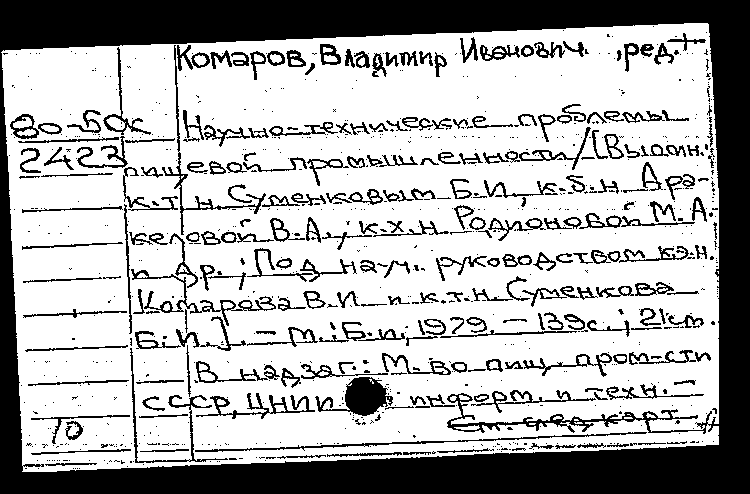 Комаров, Владимир Иванович, ред. +
80-50к
2423
Научно-технические проблемы
пищевой промышленности / [Выполн.:
к.т.н. Суменковым Б.И., к.б.н. Ара-
келовой В.А., к.х.н. Родионовой М.А.
и др.; Под науч. руководством к.э.н.
Комарова В.И. и к.т.н. Суменкова
Б.И.]. - М.: Б.и, 1979. - 139с.; 21см.
В надзаг.: М-во пищ. пром-сти
СССР, ЦНИИ информ. и техн. -
См. след. карт.
10